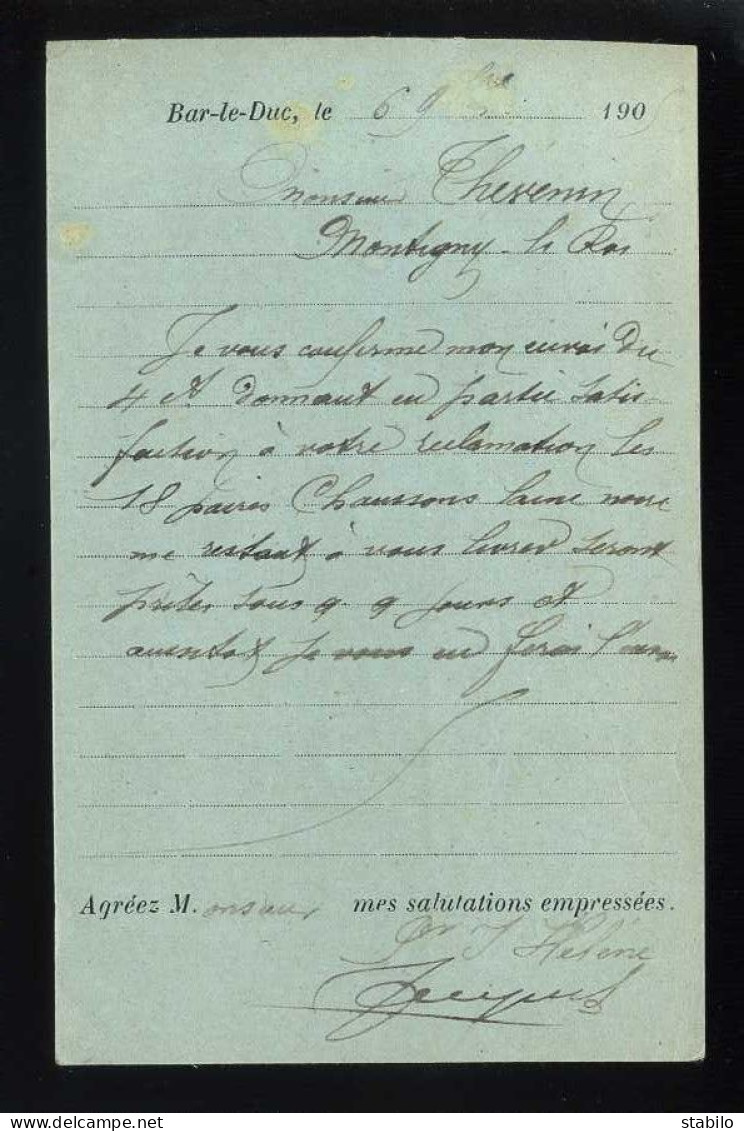 Bar-le-Duc, le 6 9bre 190
Monsieur Thevenin
Montigny-le Roi
Je vous confirme mon envoi du
4 ct donnant en partie satis-
faction à votre reclamation les
18 paires Chaussons laine noire
me restant à vous livrer seront
prètes sous q. q jours et
aussitot je vous en ferai l'envoi
Agréez M. onsieur mes salutations empressées.
Pr J Hélène
Jacques
stabilo